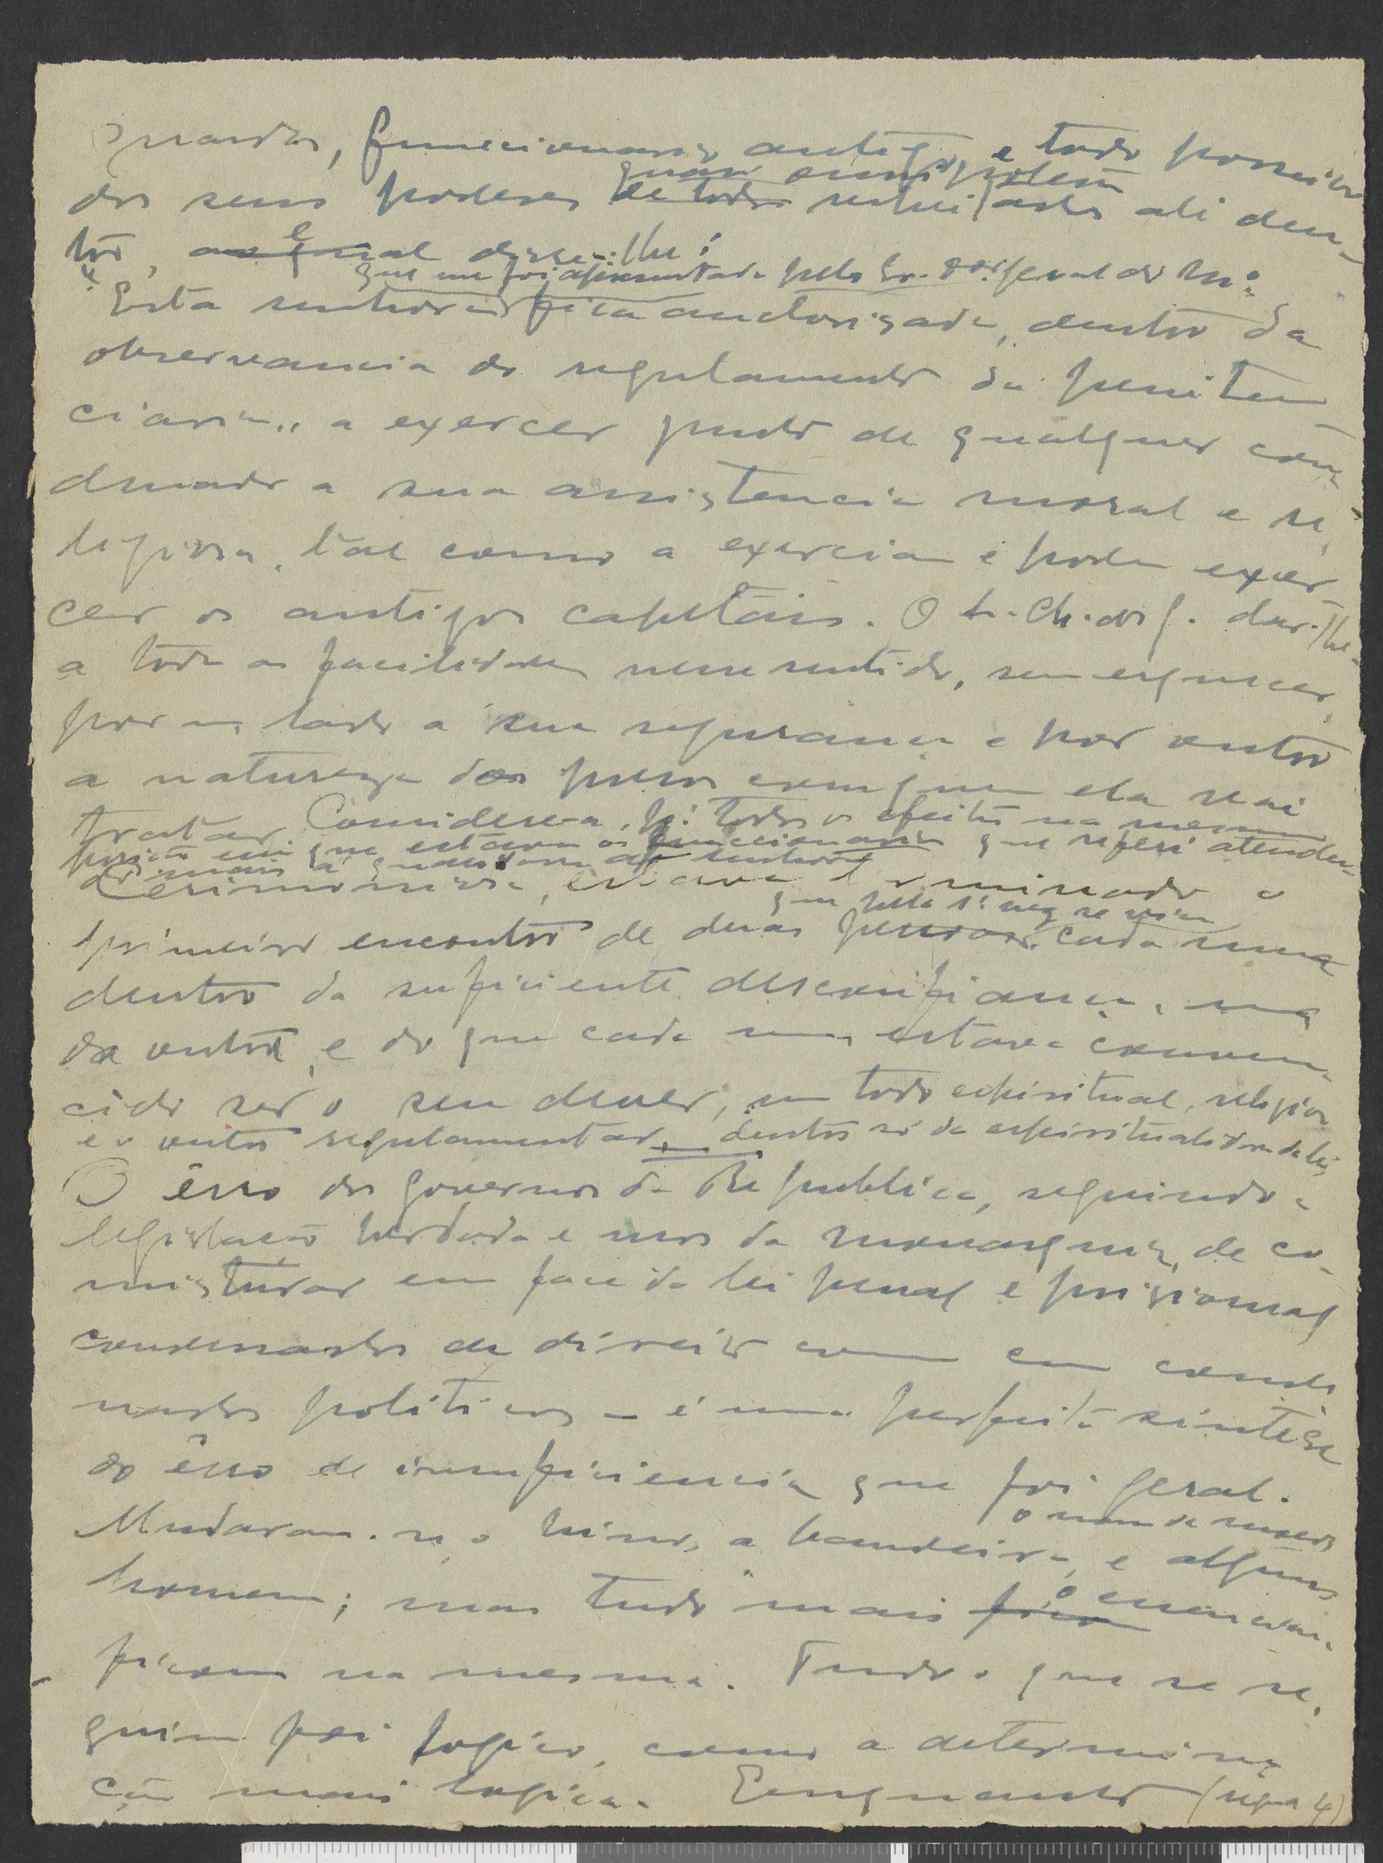 guardas, funcionario antigo e todo possuido
dos seus poderes de todos respeitados ali den-
quasi omnipotem
tro, ao qual disse-lhe:
que me foi apresentada pelo Sr. geral do Mi.
"Esta senhora fica auctorisada, dentro da
observancia do regulamento da peniten
ciaria, a exercer junto de qualquer con-
denado a sua assistencia moral e re-
ligiosa, tal como a exerciam e podem exer
cer os antigos capelães. O Sr. Ch. dos g. dar-lhe-
a toda as facilidades nesse sentido, sem esquecer,
por um lado a sua segurança e por outro
a natureza dos presos com quem ela vai
tratar. Considere-a, pª todos os efeitos na mesma
posição em que estavam os funcionarios que referi atenden-
do mais á qualidade de senhora"
Cerimonioso, estava terminado o
que pela 1ª vez se viam
primeiro encontro de duas pessoas cada uma
dentro da suficiente desconfiança, uma
da outra, e do que cada um estava conven-
cido ser o seu dever, um todo espiritual, religioso
e o outro regulamentar, dentro só da espiritualidade da lei.
O êrro dos governos da Republica, seguindo a
legislação herdada e usos da monarquia, de co-
misturar em face da lei penal e prisional
condenados de direito comum com conde
nados politicos - é uma perfeita sintese
do êrro de insuficiencia que foi geral.
o nome de ruas
Mudaram-se o hino, a bandeira, e alguns
homens; mas tudo o mais o essencial
ficou na mesma. Tudo o que se se-
guiu foi logico, como a determina
ção mais logica. Enquanto (segue 4)